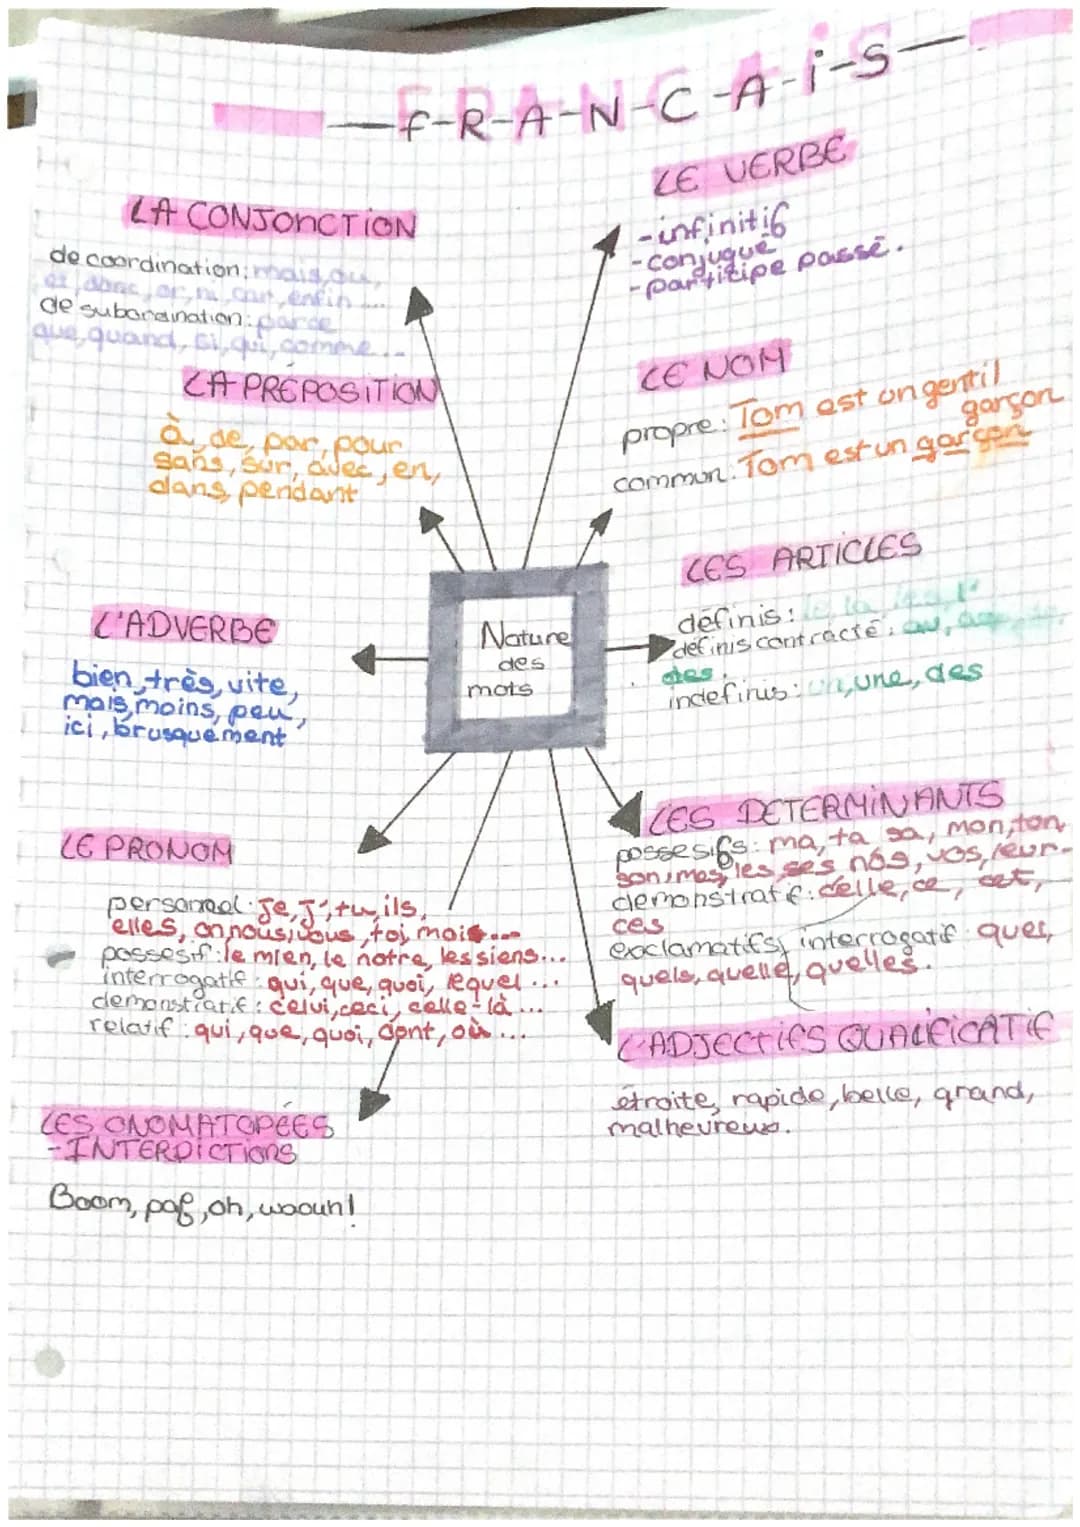 —f-R-A-N-C-A-i-S—
LA CONJONCTiON
de coordination: mais, ou,
et, donc, or, ni, car, enfin ....
de subordination: parce
que, quand, si, qui, comme...
LA PREPOSITION
à, de, par, pour
sans, sur, avec, en,
dans, pendant
L'ADVERBE
bien, très, vite,
mais, moins, peu,
ici, brusquement
LE PRONOM
personnel: Je, J', tu, ils,
elles, on, nous, vous, toi, moi ....
possesif: le mien, le notre, les siens...
interrogatif: qui, que, quoi, lequel ...
demonstratif: celui, ceci, celle-là ...
relatif: qui, que, quoi, dont, où ...
LES ONOMATOPÉES
-INTERDICTiONS
Boom, paf, oh, waouh!
Nature
des
mots
LE VERBE
-infinitif
-conjugué
-partitipe passé.
LE NOM
propre: Tom est un gentil
garçon
commun: Tom est un garçon
LES ARTICLES
définis: le, la, les, l'
définis contracté: au,
des.
indefinis: un, une, des
LES DETERMiNANTS
possesifs: ma, ta sa, mon, ton,
son, mes, les, ses nos, vos, leur-
demonstratif: celle, ce, cet,
ces
exclamatifs, interrogatif: ques,
quels, quelle, quelles.
L'ADJECTiFS QUALiFiCATiF
étroite, rapide, belle, grand,
malheureux.